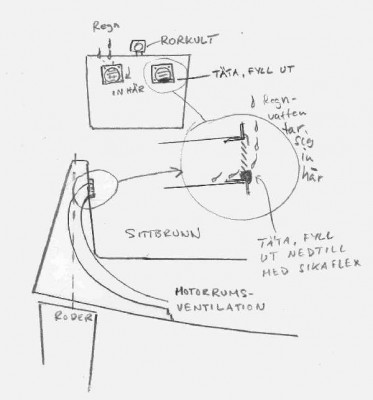 Regn
RORKULT
TÄTA, FYLL UT
IN HÄR
Regn-
vatten
tar sig
in
här
SITTBRUNN
TÄTA, FYLL
UT NEDTILL
MED SIKAFLEX
MOTORRUMS-
VENTILATION
RODER